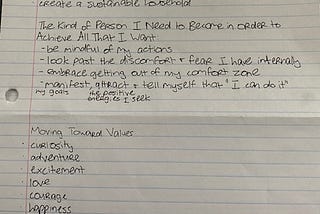 - create a sustainable household
The Kind of Person I Need to Become in order to
Achieve All That I Want
- be mindful of my actions
- look past the discomfort & fear I have internally
- embrace getting out of my comfort zone
- manifest, attract & tell myself that "I can do it"
my goals the positive
energies I seek
Moving Toward Values
· curiosity
· adventure
· excitement
· love
· courage
· happiness